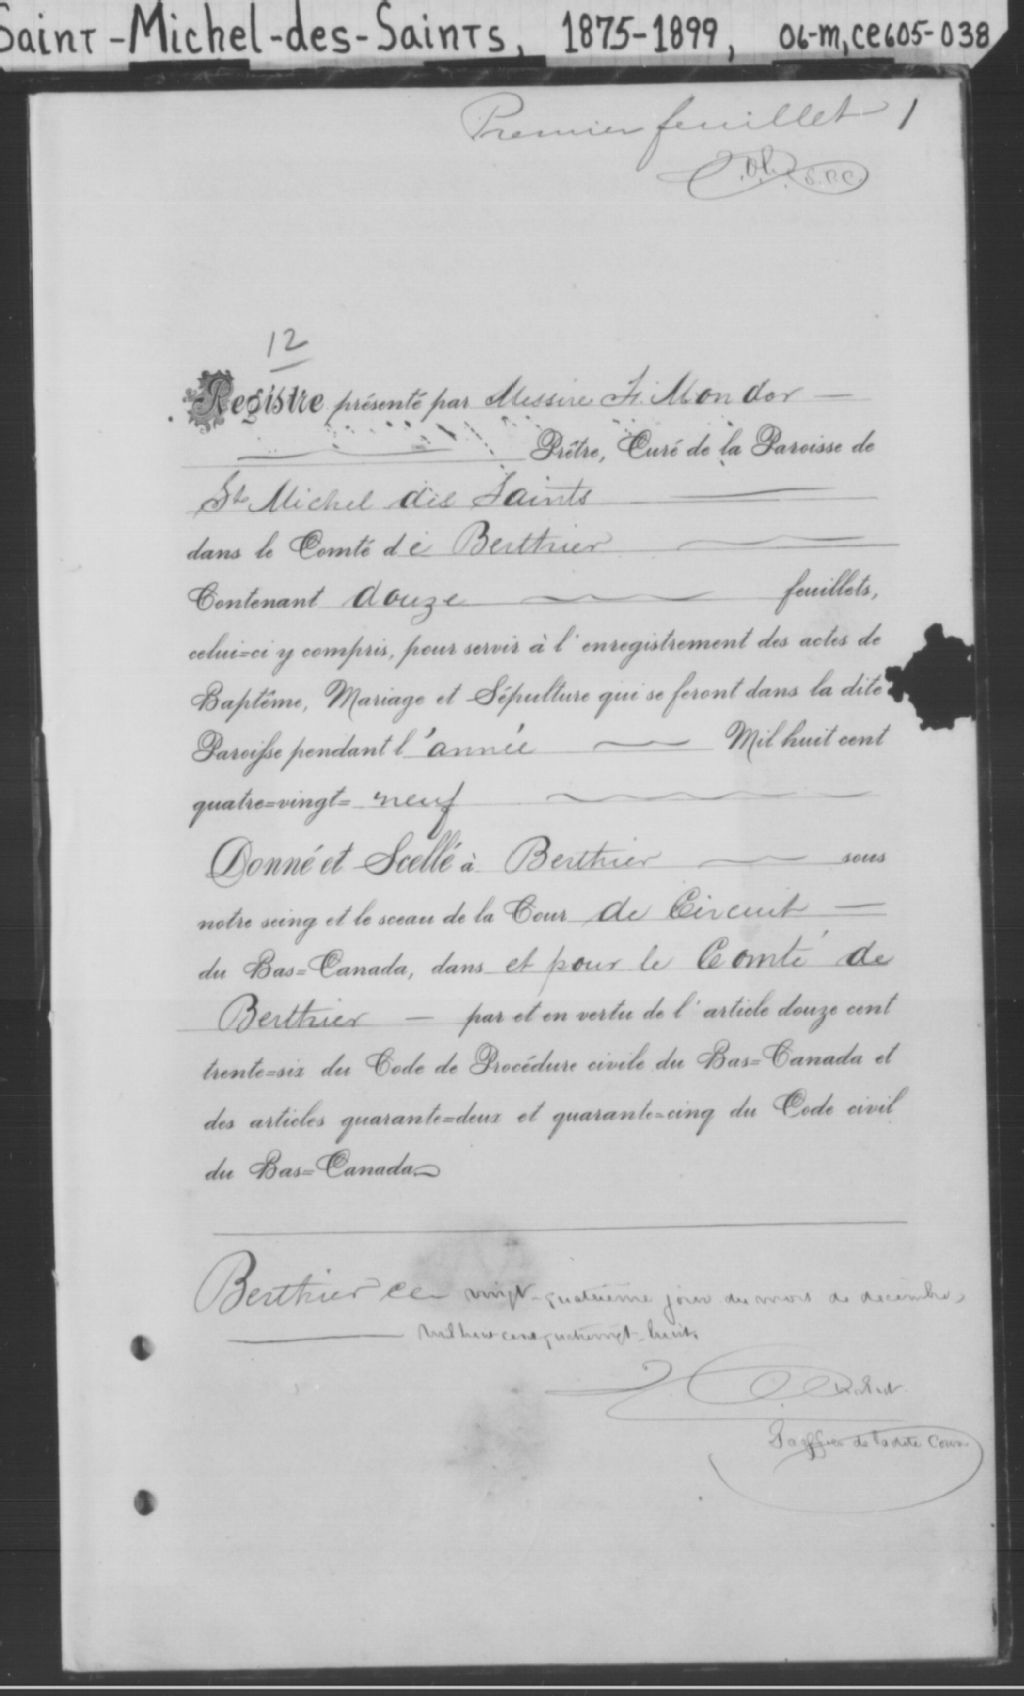 Saint-Michel-des-Saints, 1875-1899, 06-m,ce605-038
Premier feuillet 1
12
Registre présenté par Messire F. Mondor
Prêtre, Curé de la Paroisse de
St Michel des Saints
dans le Comté de Berthier
Contenant douze feuillets,
celui=ci y compris, pour servir à l'enregistrement des actes de
Baptême, Mariage et Sépulture qui se feront dans la dite
Paroisse pendant l'année Mil huit cent
quatre=vingt= neuf
Donné et Scellé à Berthier sous
notre seing et le sceau de la Cour de Circuit
du Bas=Canada, dans et pour le Comté de
Berthier par et en vertu de l'article douze cent
trente=six du Code de Procédure civile du Bas=Canada et
des articles quarante=deux et quarante=cinq du Code civil
du Bas=Canada
Berthier ce vingt-quatrième jour du mois de décembre
mil huit cent quatrevingt-huit
de la dite Cour